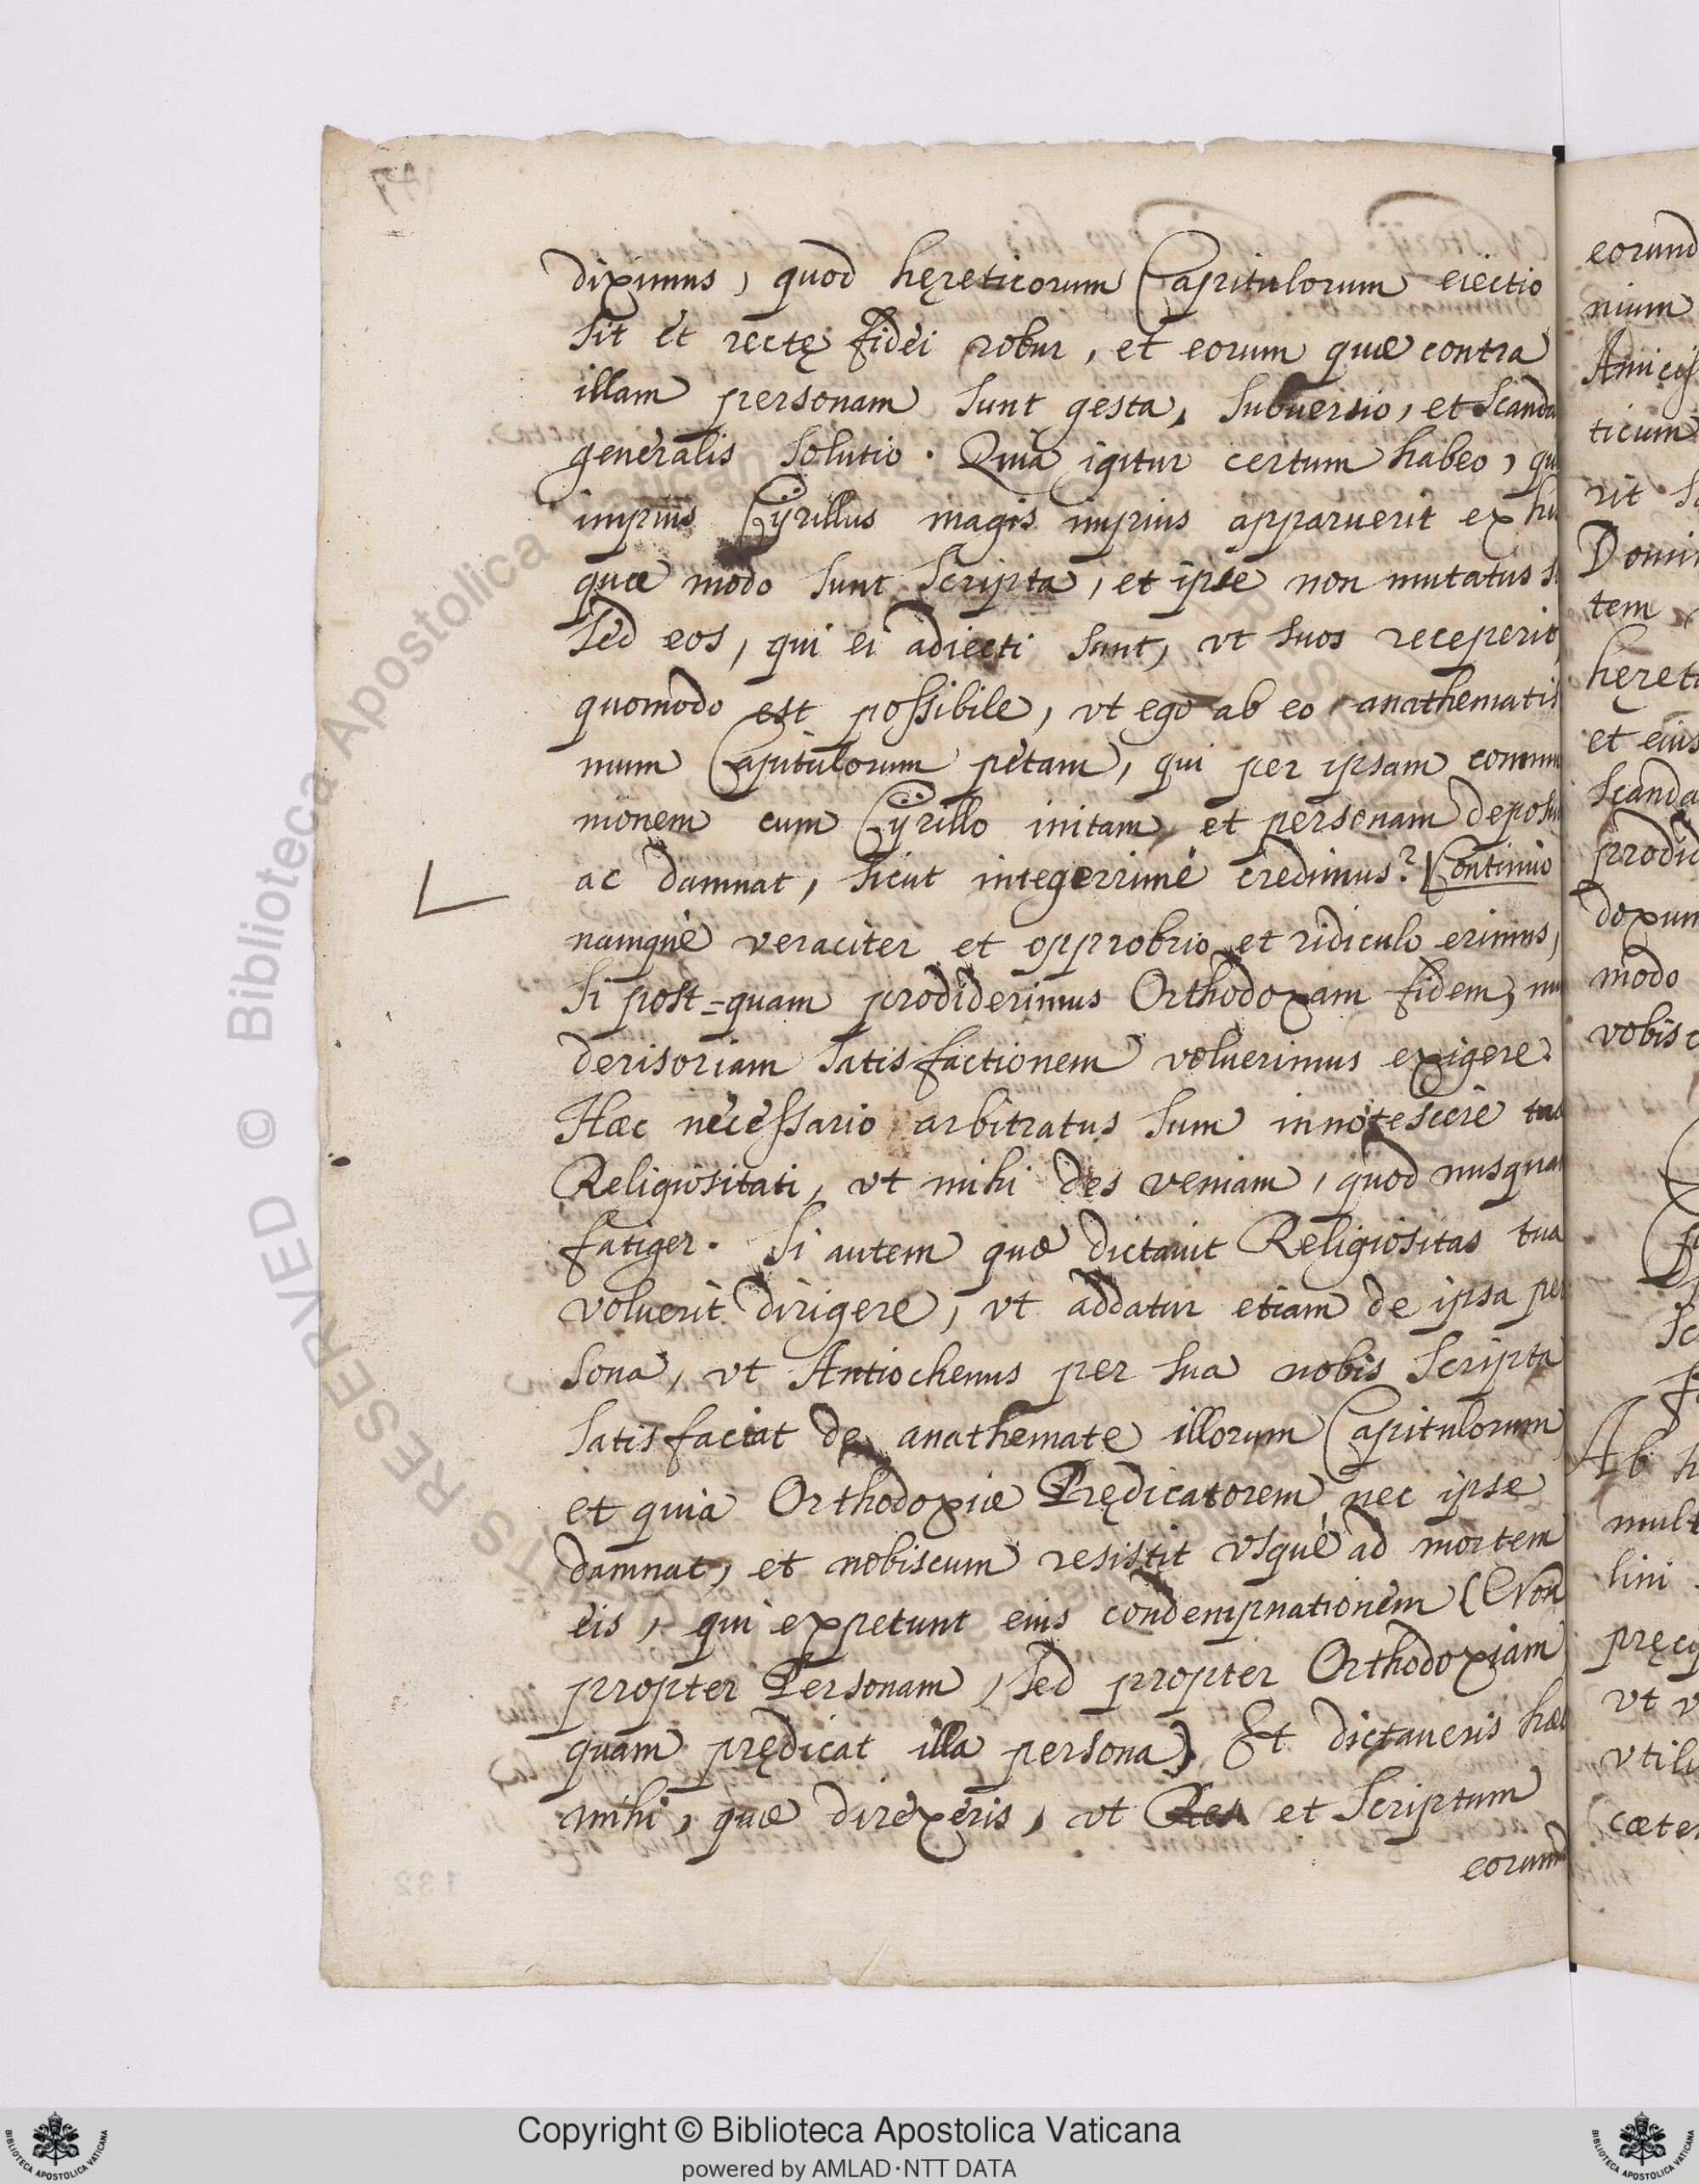 diximus, quod hęreticorum Capitulorum eiectio
sit et rectę fidei robur, et eorum quæ contra
illam personam sunt gesta, subuersio, et scanda
generalis solutio. Quia igitur certum habeo, qu
impius Cÿrillus magis impius apparuerit ex hi
quæ modo sunt scripta, et ipse non mutatus s
sed eos, qui ei adiecti sunt, vt suos receperit,
quomodo est possibile, vt ego ab eo anathematis
mum Capitulorum petam, qui per ipsam commu
nionem cum Cÿrillo initam et personam deposu
ac damnat, sicut integerrimè credimus? Continuo
namque veraciter et opprobrio et ridiculo erimus,
si post=quam prodiderimus Orthodoxam fidem,
derisoriam satisfactionem voluerimus exigere.
Hæc necessario arbitratus sum innotescere tuæ
Religiositati, vt mihi des veniam, quod nusqua
fatiger. Si autem quæ dictauit Religiositas tua
voluerit dirigere, vt addatur etiam de ipsa per
sona, vt Antiochenus per sua nobis scripta
satisfaciat de anathemate illorum Capitulorum
et quia Orthodoxiæ Prędicatorem nec ipse
damnat, et nobiscum resistit vsque ad mortem
eis, qui expetunt eius condempnationem (Non
propter Personam, sed propter Orthodoxiam
quam prędicat illa persona). Et dictaueris hæc
mihi, quæ direxeris, vt et scriptum
eorum
eorund
nium
Amicis
ticum
rit
Domi
tem
hęreti
et eius
scanda
prodid
doxum
modo
vobis c
Ab h
mult
lini
pręc
vt v
vtili
cæter
132
© Biblioteca Apostolica Vaticana
RESERVED
Copyright © Biblioteca Apostolica Vaticana
powered by AMLAD·NTT DATA
BIBLIOTECA APOSTOLICA VATICANA
BIBLIOTECA APOSTOLICA VATICANA